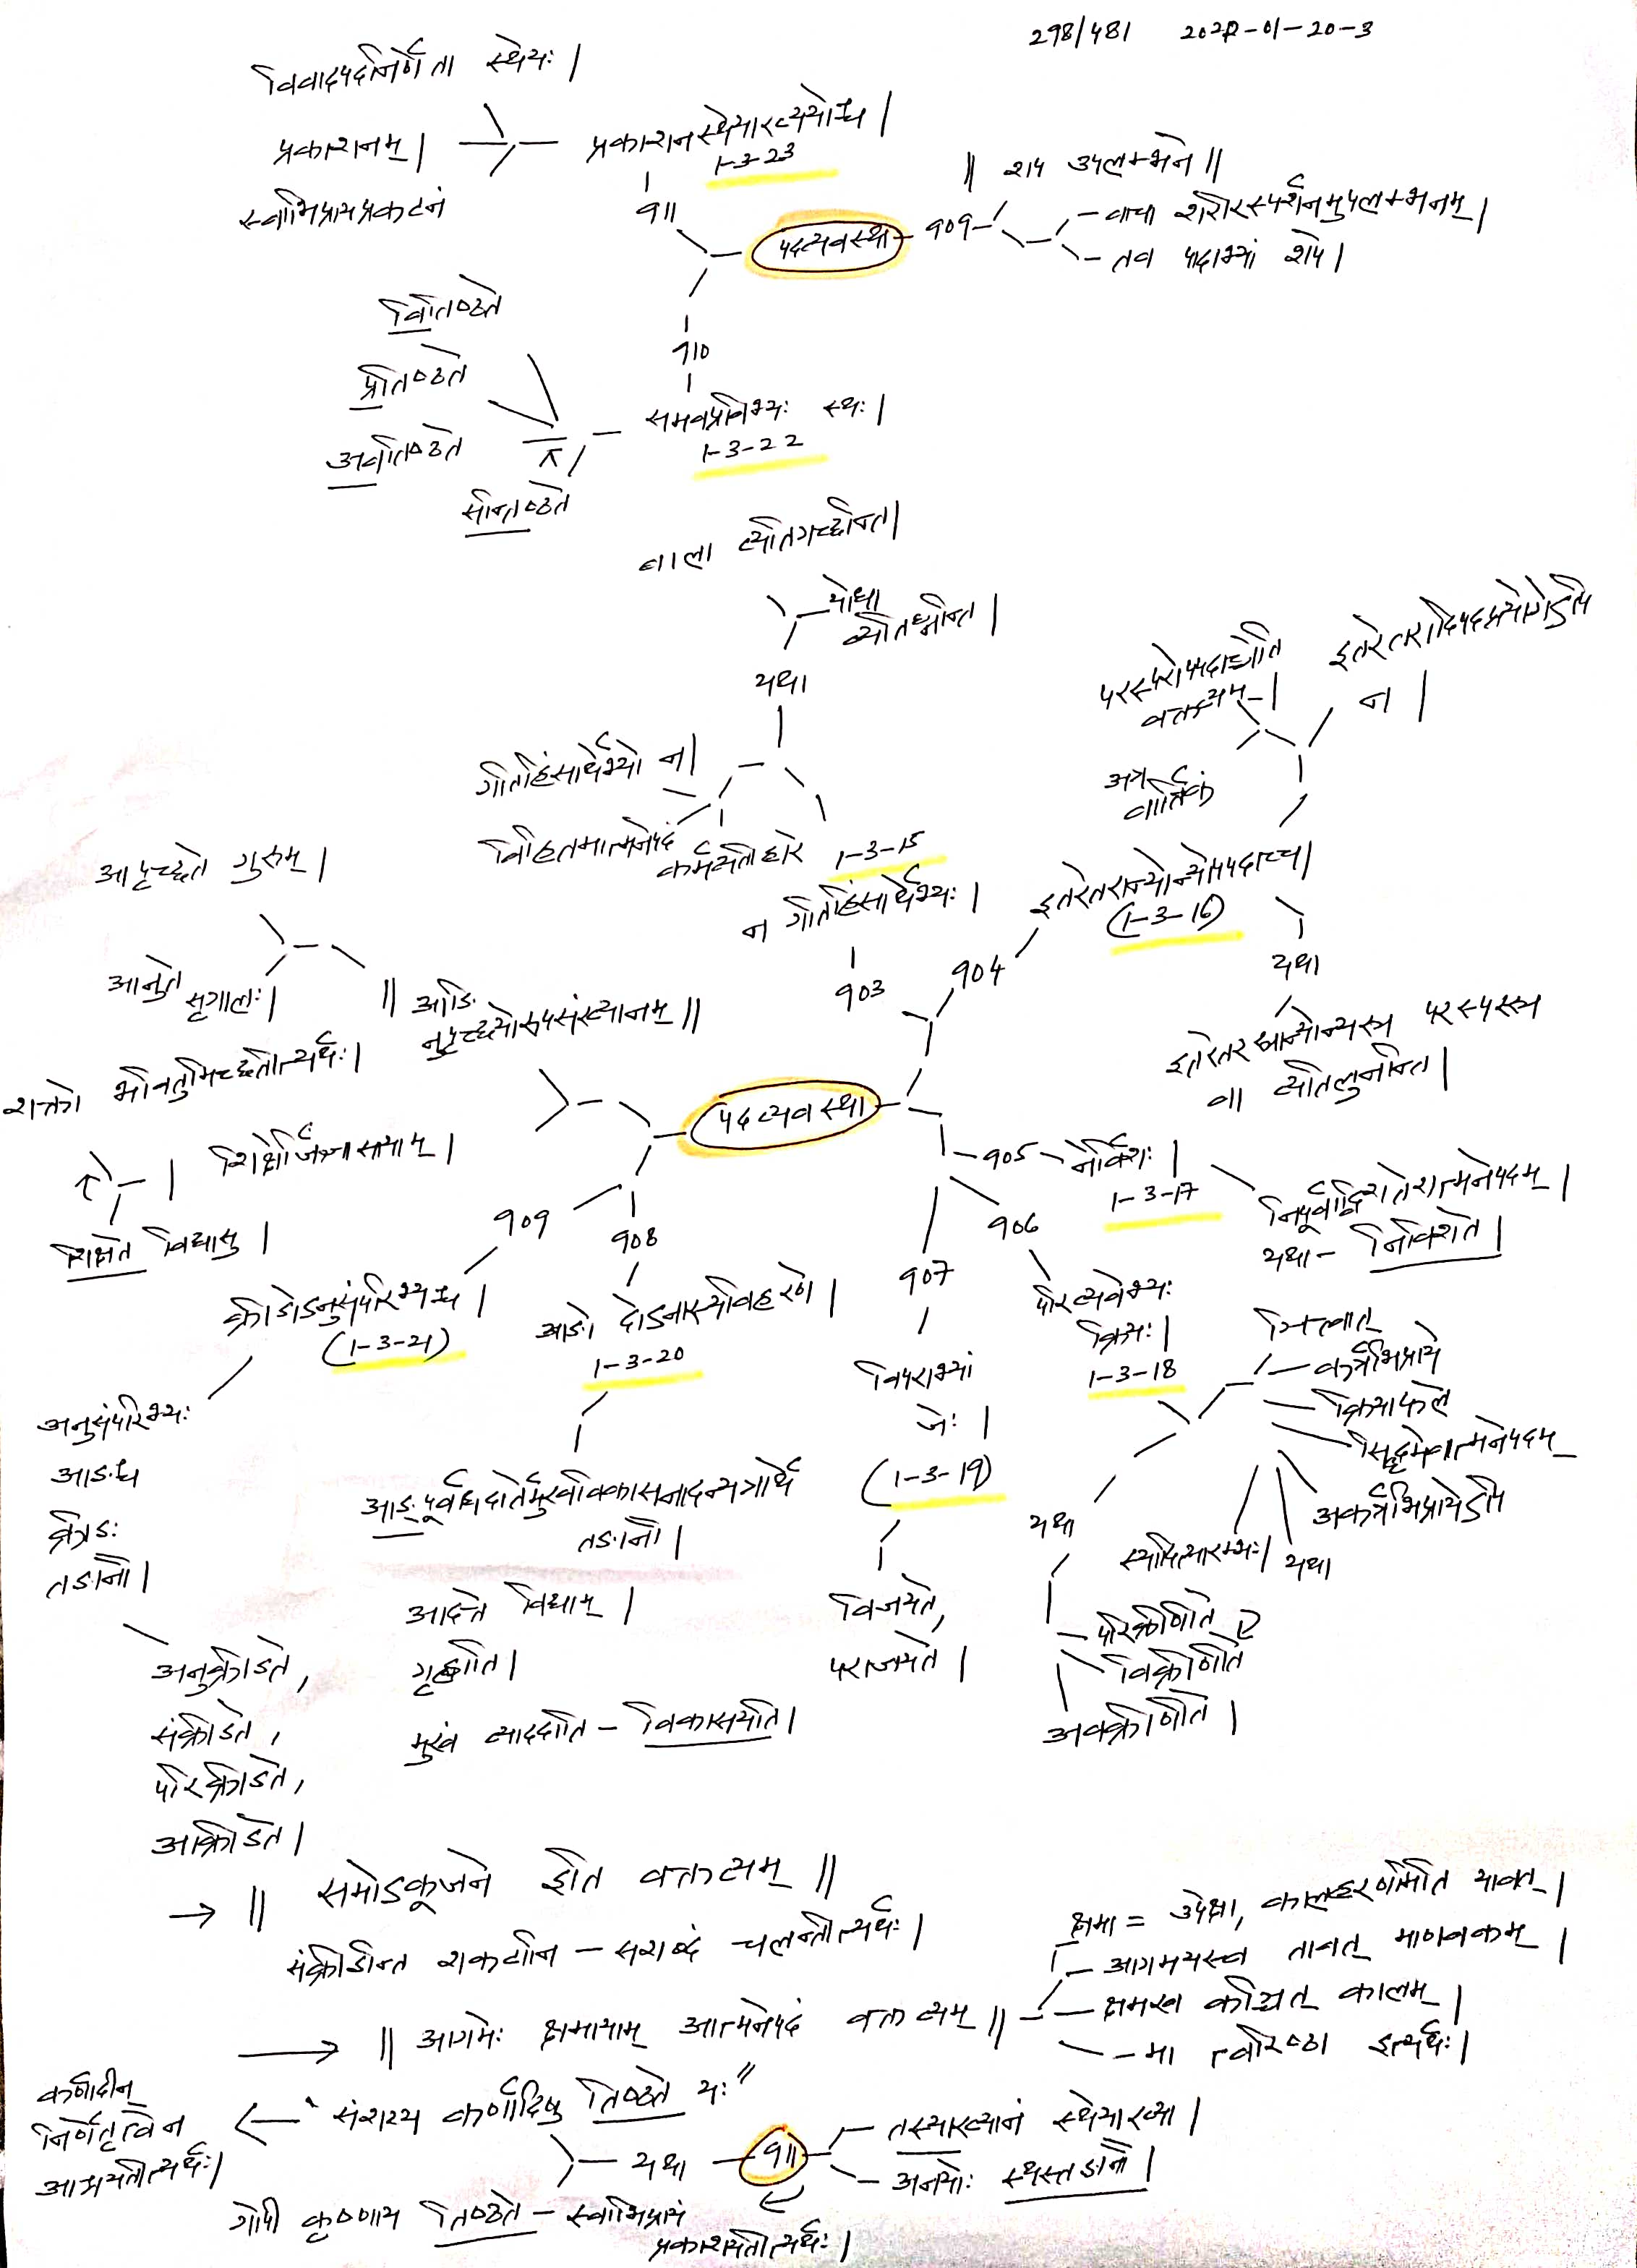 298/481 2022-01-20-3
विवादपदनिर्णेता स्थेयः।
प्रकाशनम्।
स्वाभिप्रायप्रकटनं
प्रकाशनस्थेयाख्ययोश्च।
1-3-23
911
पदव्यवस्था
909
॥ शप उपलम्भने॥
वाचा शरीरस्पर्शनमुपलम्भनम्।
तव पादाभ्यां शपे।
910
समवप्रविभ्यः स्थः।
1-3-22
वितिष्ठते
प्रतिष्ठते
अवतिष्ठते
सन्तिष्ठते
बाला व्यतिगच्छन्ति।
योधा
व्यतिघ्नन्ति।
यथा
गतिहिंसार्थेभ्यो न।
विहितमात्मनेपदं
कर्मव्यतीहारे
1-3-15
न गतिहिंसार्थेभ्यः।
903
परस्परोपपदाच्चेति
वक्तव्यम्।
इतरेतरादिपदप्रयोगेऽपि
न।
अत्र
वार्तिकं
इतरेतरान्योन्योपपदाच्च।
(1-3-16)
904
यथा
इतरेतरस्यान्योन्यस्य परस्परस्य
वा व्यतिलुनन्ति।
आपृच्छते गुरुम्।
आनुते
सृगालः।
॥ आङि
नुपृच्छ्योरुपसंख्यानम्॥
शक्तो भवितुमिच्छतीत्यर्थः।
शिक्षेर्जिज्ञासायाम्।
शिक्षते विद्यासु।
पदव्यवस्था
905
नेर्विशः।
1-3-17
निपूर्वाद्विशतेरात्मनेपदम्।
यथा - निविशते।
906
परिव्यवेभ्यः
क्रियः।
1-3-18
ञित्वात्
कर्त्रभिप्राये
क्रियाफले
सिद्धमेवात्मनेपदम्
अकर्त्रभिप्रायेऽपि
यथा
यथा
परिक्रीणीते
विक्रीणीते
अवक्रीणीते।
907
विपराभ्यां
जेः।
(1-3-19)
विजयते,
पराजयते।
908
आङो दोऽनास्यविहरणे।
1-3-20
आङ्पूर्वाद्ददातेर्मुखविकासनादन्यत्रार्थे
तङानौ।
आदत्ते विद्याम्।
गृह्णाति।
मुखं व्याददाति - विकासयति।
909
क्रीडोऽनुसंपरिभ्यश्च।
(1-3-21)
अनुसंपरिभ्यः
आङश्च
क्रीडः
तङानौ।
अनुक्रीडते,
संक्रीडते,
परिक्रीडते,
आक्रीडते।
→ ॥ समोऽकूजने इति वक्तव्यम् ॥
संक्रीडन्ति शकटानि - सशब्दं चलन्तीत्यर्थः।
→ ॥ आगमेः क्षमायाम् आत्मनेपदं वक्तव्यम् ॥
क्षमा = उपेक्षा, कालहरणमिति यावत्।
आगमयस्व तावत् माणवकम्।
क्षमस्व कञ्चित् कालम्।
मा त्वरिष्ठा इत्यर्थः।
"संशय्य कर्णादिषु तिष्ठते यः"
कर्णादीन्
निर्णेतृत्वेन
आश्रयतीत्यर्थः।
यथा
911
तस्याख्यानं स्थेयाख्या।
अनयोः स्थस्तङानौ।
गोपी कृष्णाय तिष्ठते - स्वाभिप्रायं
प्रकाशयतीत्यर्थः।